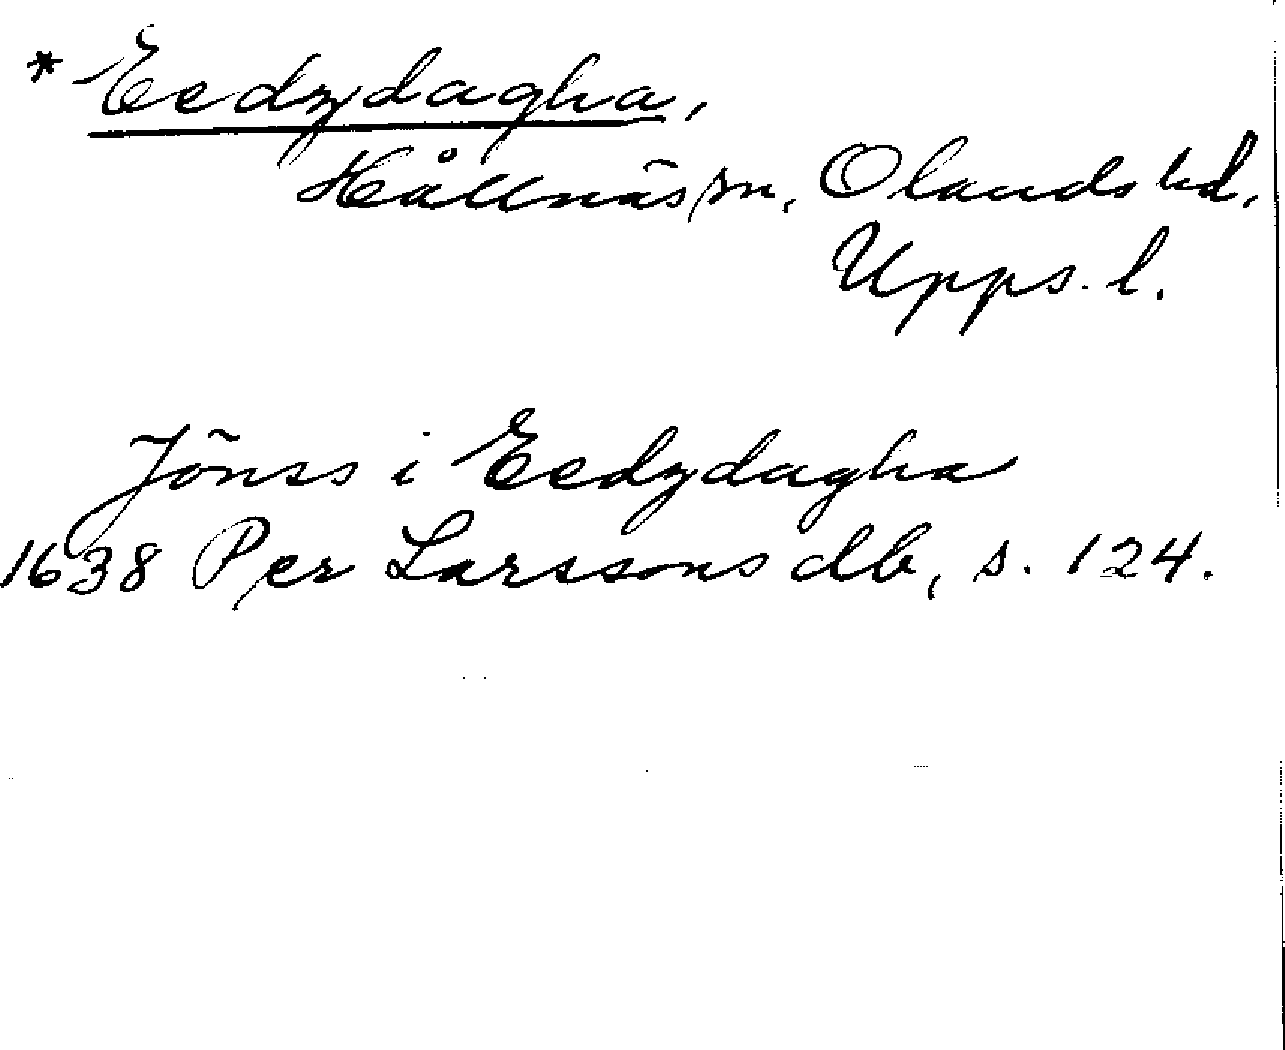 * Eedzdagha,
Hållnäs sn, Olands hd.
Upps. l.
Jönss i Eedzdagha
1638 Per Larssons db, s. 124.